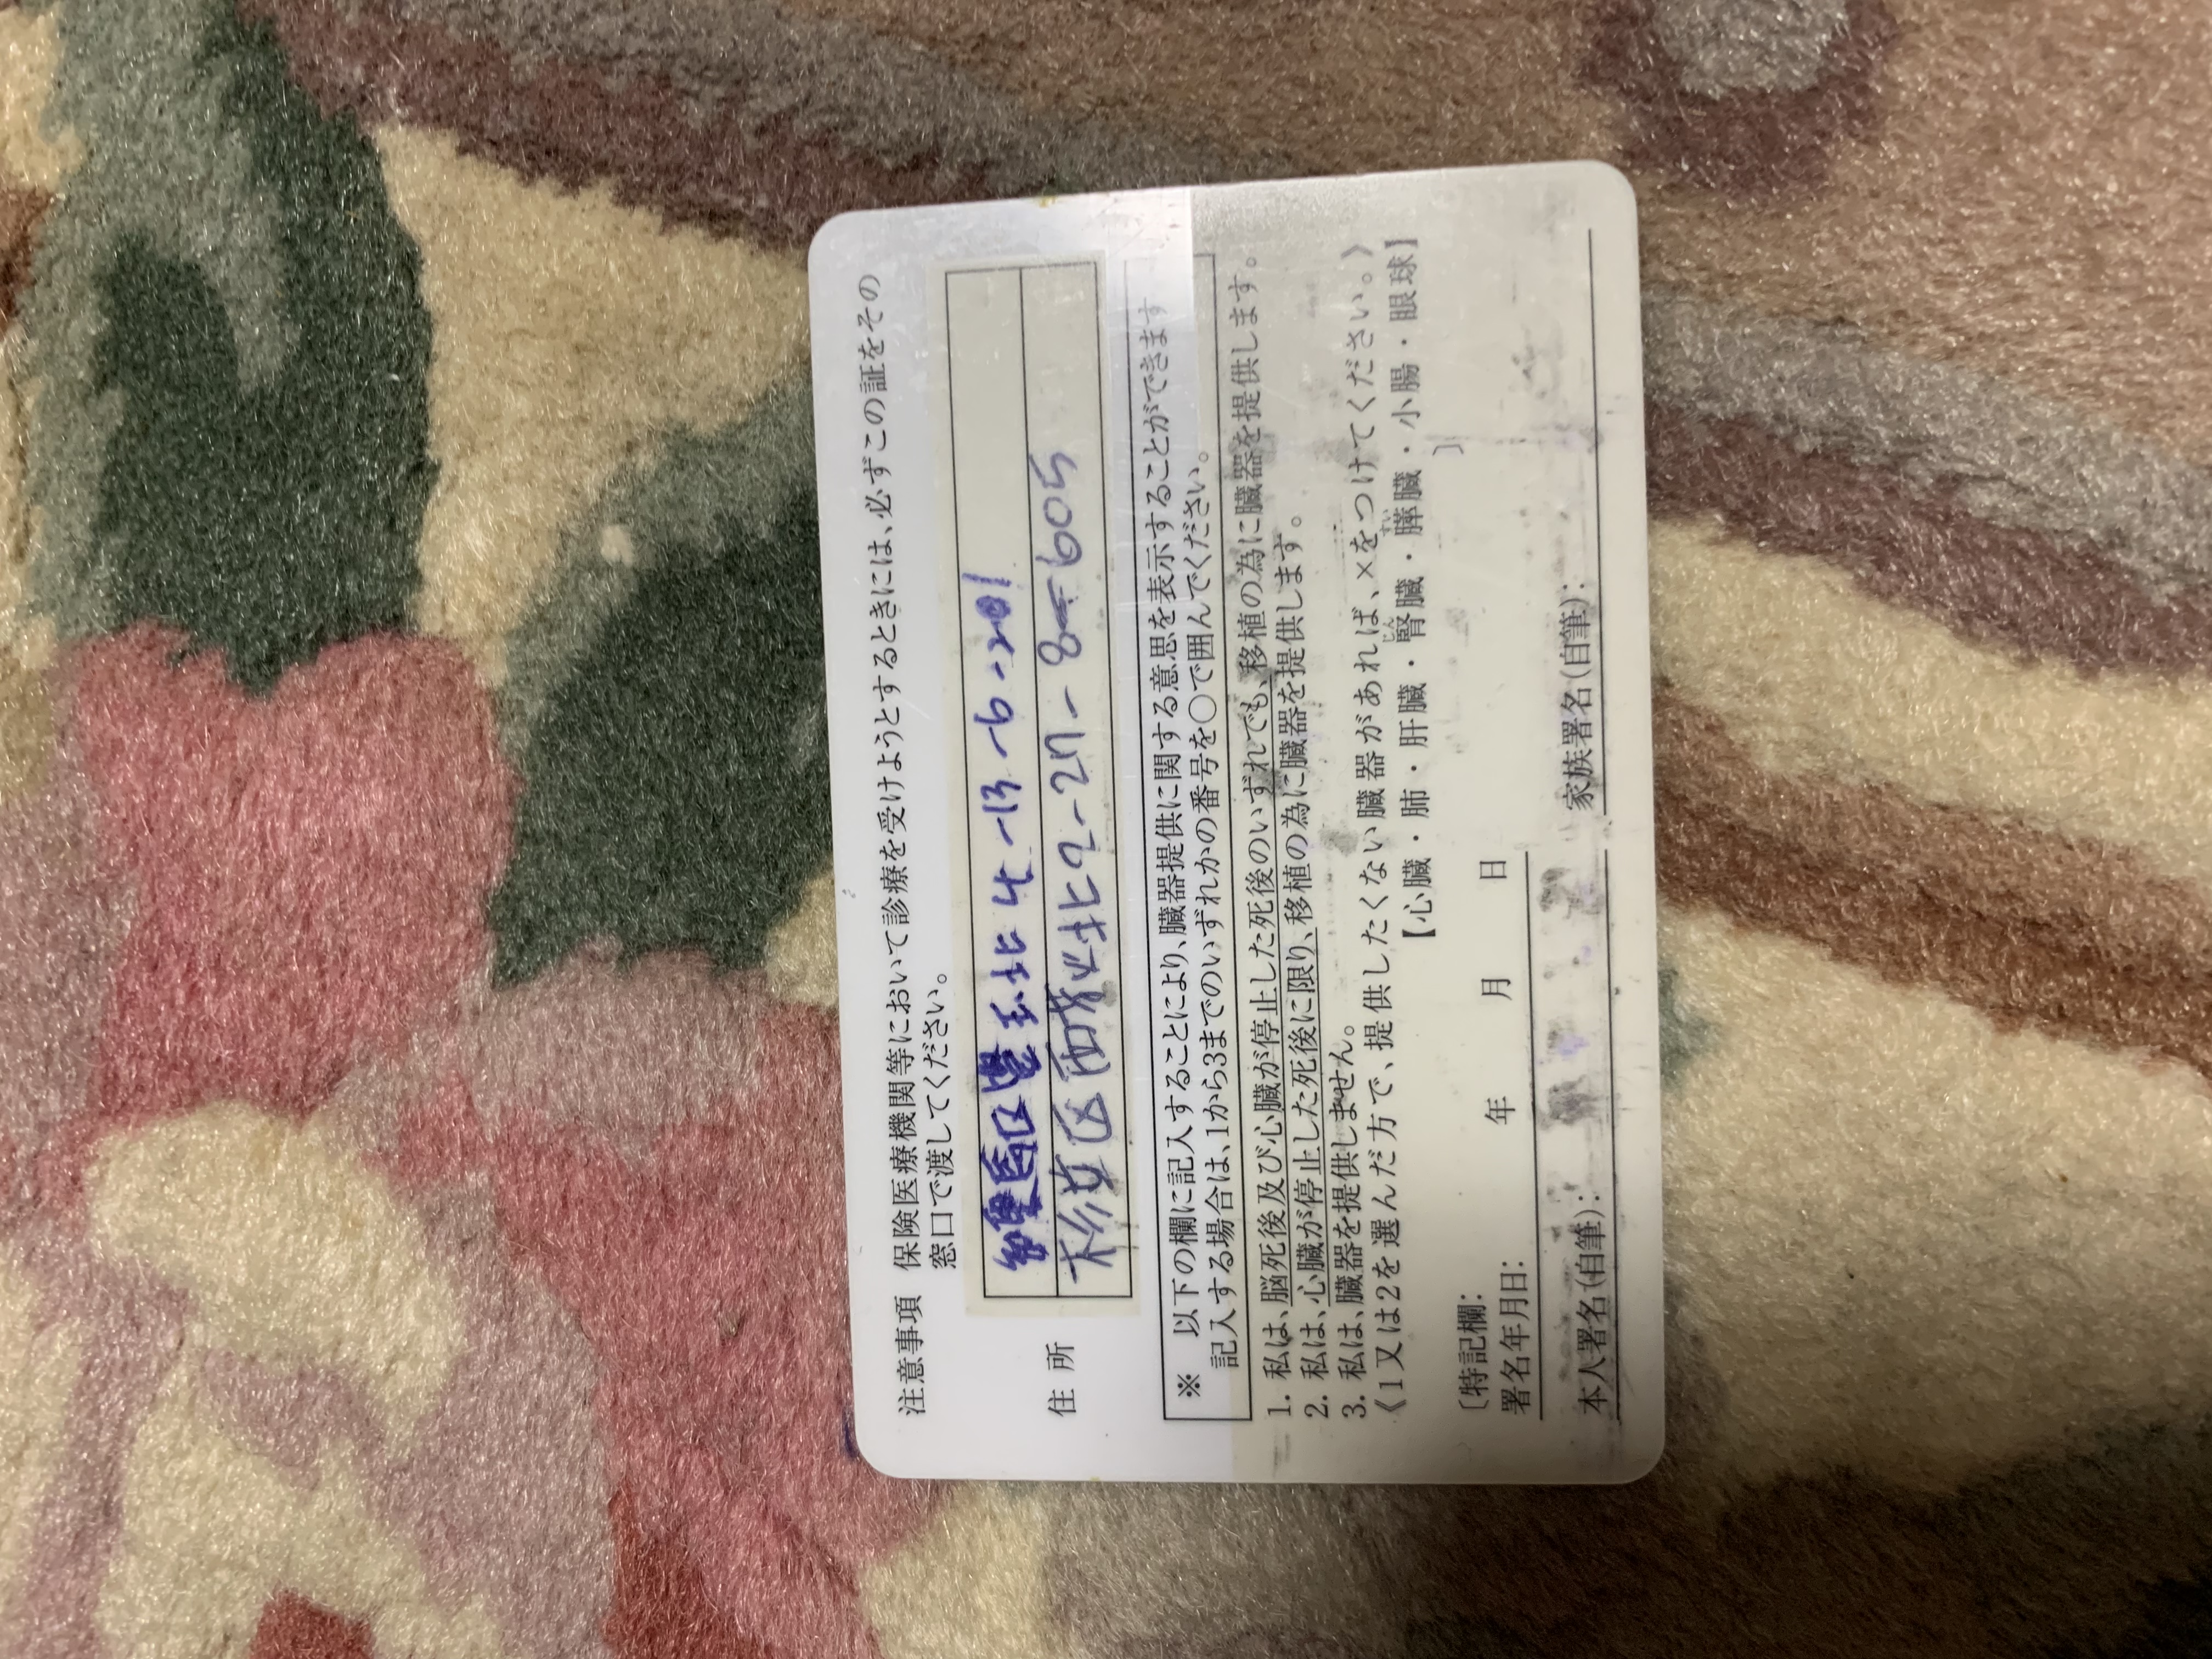 注意事項 保険医療機関等において診療を受けようとするときには、必ずこの証をその
窓口で渡してください。
住所
練馬区豊玉北4-13-6-201
杉並区西荻北2-27-8-605
※ 以下の欄に記入することにより、臓器提供に関する意思を表示することができます
記入する場合は、1から3までのいずれかの番号を〇で囲んでください。
1. 私は、脳死後及び心臓が停止した死後のいずれでも、移植の為に臓器を提供します。
2. 私は、心臓が停止した死後に限り、移植の為に臓器を提供します。
3. 私は、臓器を提供しません。
《1又は2を選んだ方で、提供したくない臓器があれば、×をつけてください。》
【心臓・肺・肝臓・腎臓・膵臓・小腸・眼球】
〔特記欄: 〕
署名年月日: 年 月 日
本人署名(自筆): 家族署名(自筆):